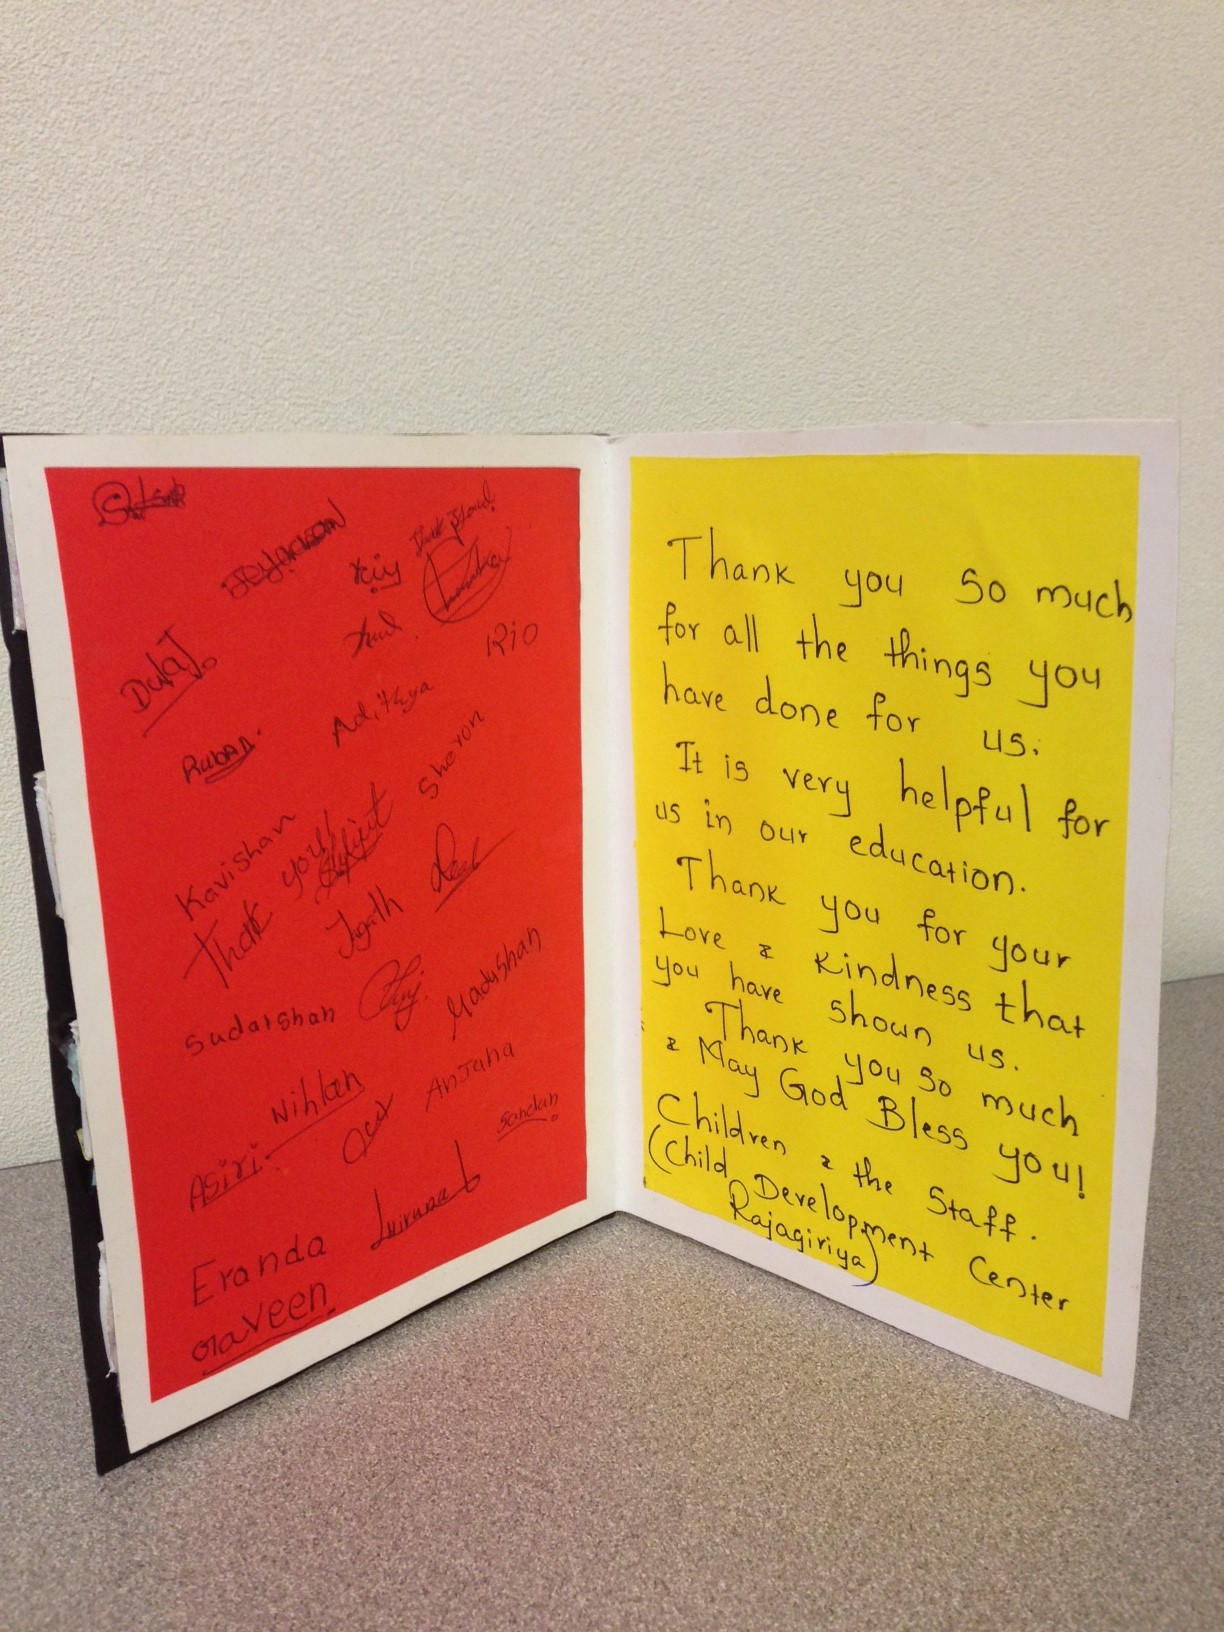 Dulaj.
Rio
Ruban.
Adithya
Kavishan
Sheron
Thank you!!
Jgath
Sudarshan
Madushan
Nihlan
Anjuna
Asiri
Sandun
Eranda
Thank you so much
for all the things you
have done for us.
It is very helpful for
us in our education.
Thank you for your
Love & kindness that
you have shown us.
Thank you so much
& May God Bless you!
Children & the Staff.
(Child Development Center
Rajagiriya)